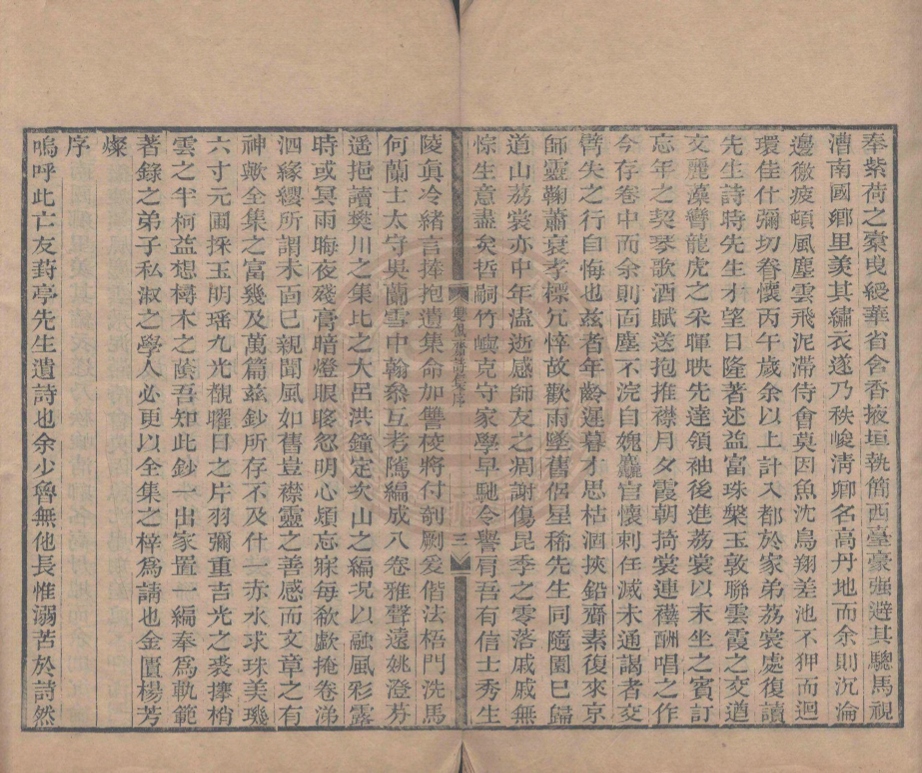 奉紫荷之橐曳綬華省含香掖垣執簡西臺豪强避其驄馬視
漕南國鄉里羡其繡衣遂乃秩峻淸卿名高丹地而余則沉淪
邊徼疲頓風塵雲飛泥滯侍會莫因魚沈鳥翔差池不狎而迴
環佳什彌切眷懷丙午歲余以上計入都於家弟荔裳處復讀
先生詩時先生才望日隆著述益富珠槃玉敦聯雲霞之交遒
文麗藻響龍虎之采暉映先達領袖後進荔裳以末坐之賓訂
忘年之契琴歌酒賦送抱推襟月夕霞朝掎裳連襼酬唱之作
今存卷中而余則面塵不浣自媿麤官懷刺任滅未通謁者交
臂失之行自悔也兹者年齡遲暮才思枯涸挾鉛齎素復來京
師靈鞠蕭衰孝標冗悴故歡雨墜舊侶星稀先生同隨園已歸
道山荔裳亦中年溘逝感師友之凋謝傷昆季之零落戚戚無
悰生意盡矣哲嗣竹嶼克守家學早馳令譽肩吾有信士秀生
三
陵眞冷緒言捧抱遺集命加讐校將付剞劂爰偕法梧門洗馬
何蘭士太守吳蘭雪中翰叅互考隲編成八卷雅聲遠姚澄芬
遥挹讀樊川之集比之大呂洪鐘定次山之編况以融風彩露
時或冥雨晦夜殘膏暗燈眼眵忽明心煩忘寐每欷歔掩卷涕
泗緣纓所謂未面已親聞風如舊豈襟靈之善感而文章之有
神歟全集之富幾及萬篇兹鈔所存不及什一赤水求珠美璣
六寸元圃採玉明瑶九光覩曜日之片羽彌重吉光之裘攗梢
雲之半柯益想樽木之蔭吾知此鈔一出家置一編奉爲軌範
著錄之弟子私淑之學人必更以全集之梓爲請也金匱楊芳
燦
序
嗚呼此亡友葑亭先生遺詩也余少魯無他長惟溺苦於詩然